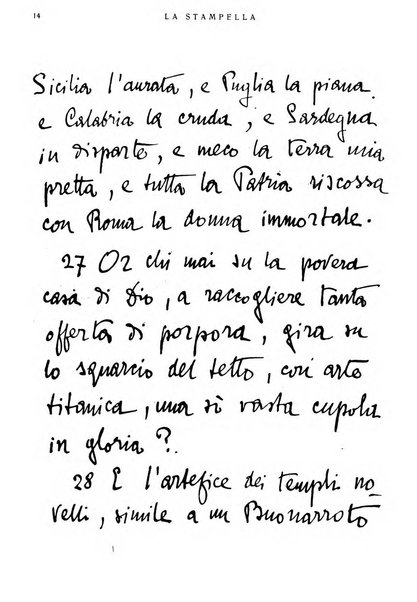 14 LA STAMPELLA
Sicilia l'aurata, e Puglia la piana
e Calabria la cruda, e Sardegna
in disparte, e meco la terra mia
pretta, e tutta la Patria riscossa
con Roma la donna immortale.
27 Or chi mai su la povera
casa di Dio, a raccogliere tanta
offerta di porpora, gira su
lo squarcio del tetto, con arte
titanica, una sì vasta cupola
in gloria?
28 E l'artefice dei templi no-
velli, simile a un Buonarroto